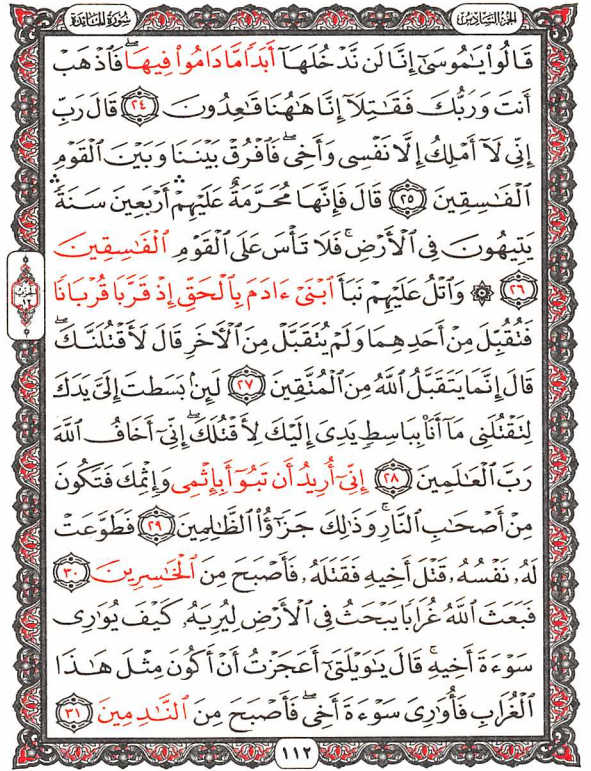 الجزء السادس
سورة المائدة
قَالُواْ يَٰمُوسَىٰٓ إِنَّا لَن نَّدۡخُلَهَآ أَبَدٗا مَّا دَامُواْ فِيهَا فَٱذۡهَبۡ
أَنتَ وَرَبُّكَ فَقَٰتِلَآ إِنَّا هَٰهُنَا قَٰعِدُونَ ٢٤ قَالَ رَبِّ
إِنِّي لَآ أَمۡلِكُ إِلَّا نَفۡسِي وَأَخِيۖ فَٱفۡرُقۡ بَيۡنَنَا وَبَيۡنَ ٱلۡقَوۡمِ
ٱلۡفَٰسِقِينَ ٢٥ قَالَ فَإِنَّهَا مُحَرَّمَةٌ عَلَيۡهِمۡۛ أَرۡبَعِينَ سَنَةٗۛ
يَتِيهُونَ فِي ٱلۡأَرۡضِۚ فَلَا تَأۡسَ عَلَى ٱلۡقَوۡمِ ٱلۡفَٰسِقِينَ
٢٦ ۞ وَٱتۡلُ عَلَيۡهِمۡ نَبَأَ ٱبۡنَيۡ ءَادَمَ بِٱلۡحَقِّ إِذۡ قَرَّبَا قُرۡبَانٗا
فَتُقُبِّلَ مِنۡ أَحَدِهِمَا وَلَمۡ يُتَقَبَّلۡ مِنَ ٱلۡأٓخَرِ قَالَ لَأَقۡتُلَنَّكَۖ
قَالَ إِنَّمَا يَتَقَبَّلُ ٱللَّهُ مِنَ ٱلۡمُتَّقِينَ ٢٧ لَئِنۢ بَسَطتَ إِلَيَّ يَدَكَ
لِتَقۡتُلَنِي مَآ أَنَا۠ بِبَاسِطٖ يَدِيَ إِلَيۡكَ لِأَقۡتُلَكَۖ إِنِّيٓ أَخَافُ ٱللَّهَ
رَبَّ ٱلۡعَٰلَمِينَ ٢٨ إِنِّيٓ أُرِيدُ أَن تَبُوٓأَ بِإِثۡمِي وَإِثۡمِكَ فَتَكُونَ
مِنۡ أَصۡحَٰبِ ٱلنَّارِۚ وَذَٰلِكَ جَزَٰٓؤُاْ ٱلظَّٰلِمِينَ ٢٩ فَطَوَّعَتۡ
لَهُۥ نَفۡسُهُۥ قَتۡلَ أَخِيهِ فَقَتَلَهُۥ فَأَصۡبَحَ مِنَ ٱلۡخَٰسِرِينَ ٣٠
فَبَعَثَ ٱللَّهُ غُرَابٗا يَبۡحَثُ فِي ٱلۡأَرۡضِ لِيُرِيَهُۥ كَيۡفَ يُوَٰرِي
سَوۡءَةَ أَخِيهِۚ قَالَ يَٰوَيۡلَتَىٰٓ أَعَجَزۡتُ أَنۡ أَكُونَ مِثۡلَ هَٰذَا
ٱلۡغُرَابِ فَأُوَٰرِيَ سَوۡءَةَ أَخِيۖ فَأَصۡبَحَ مِنَ ٱلنَّٰدِمِينَ ٣١
١١٢